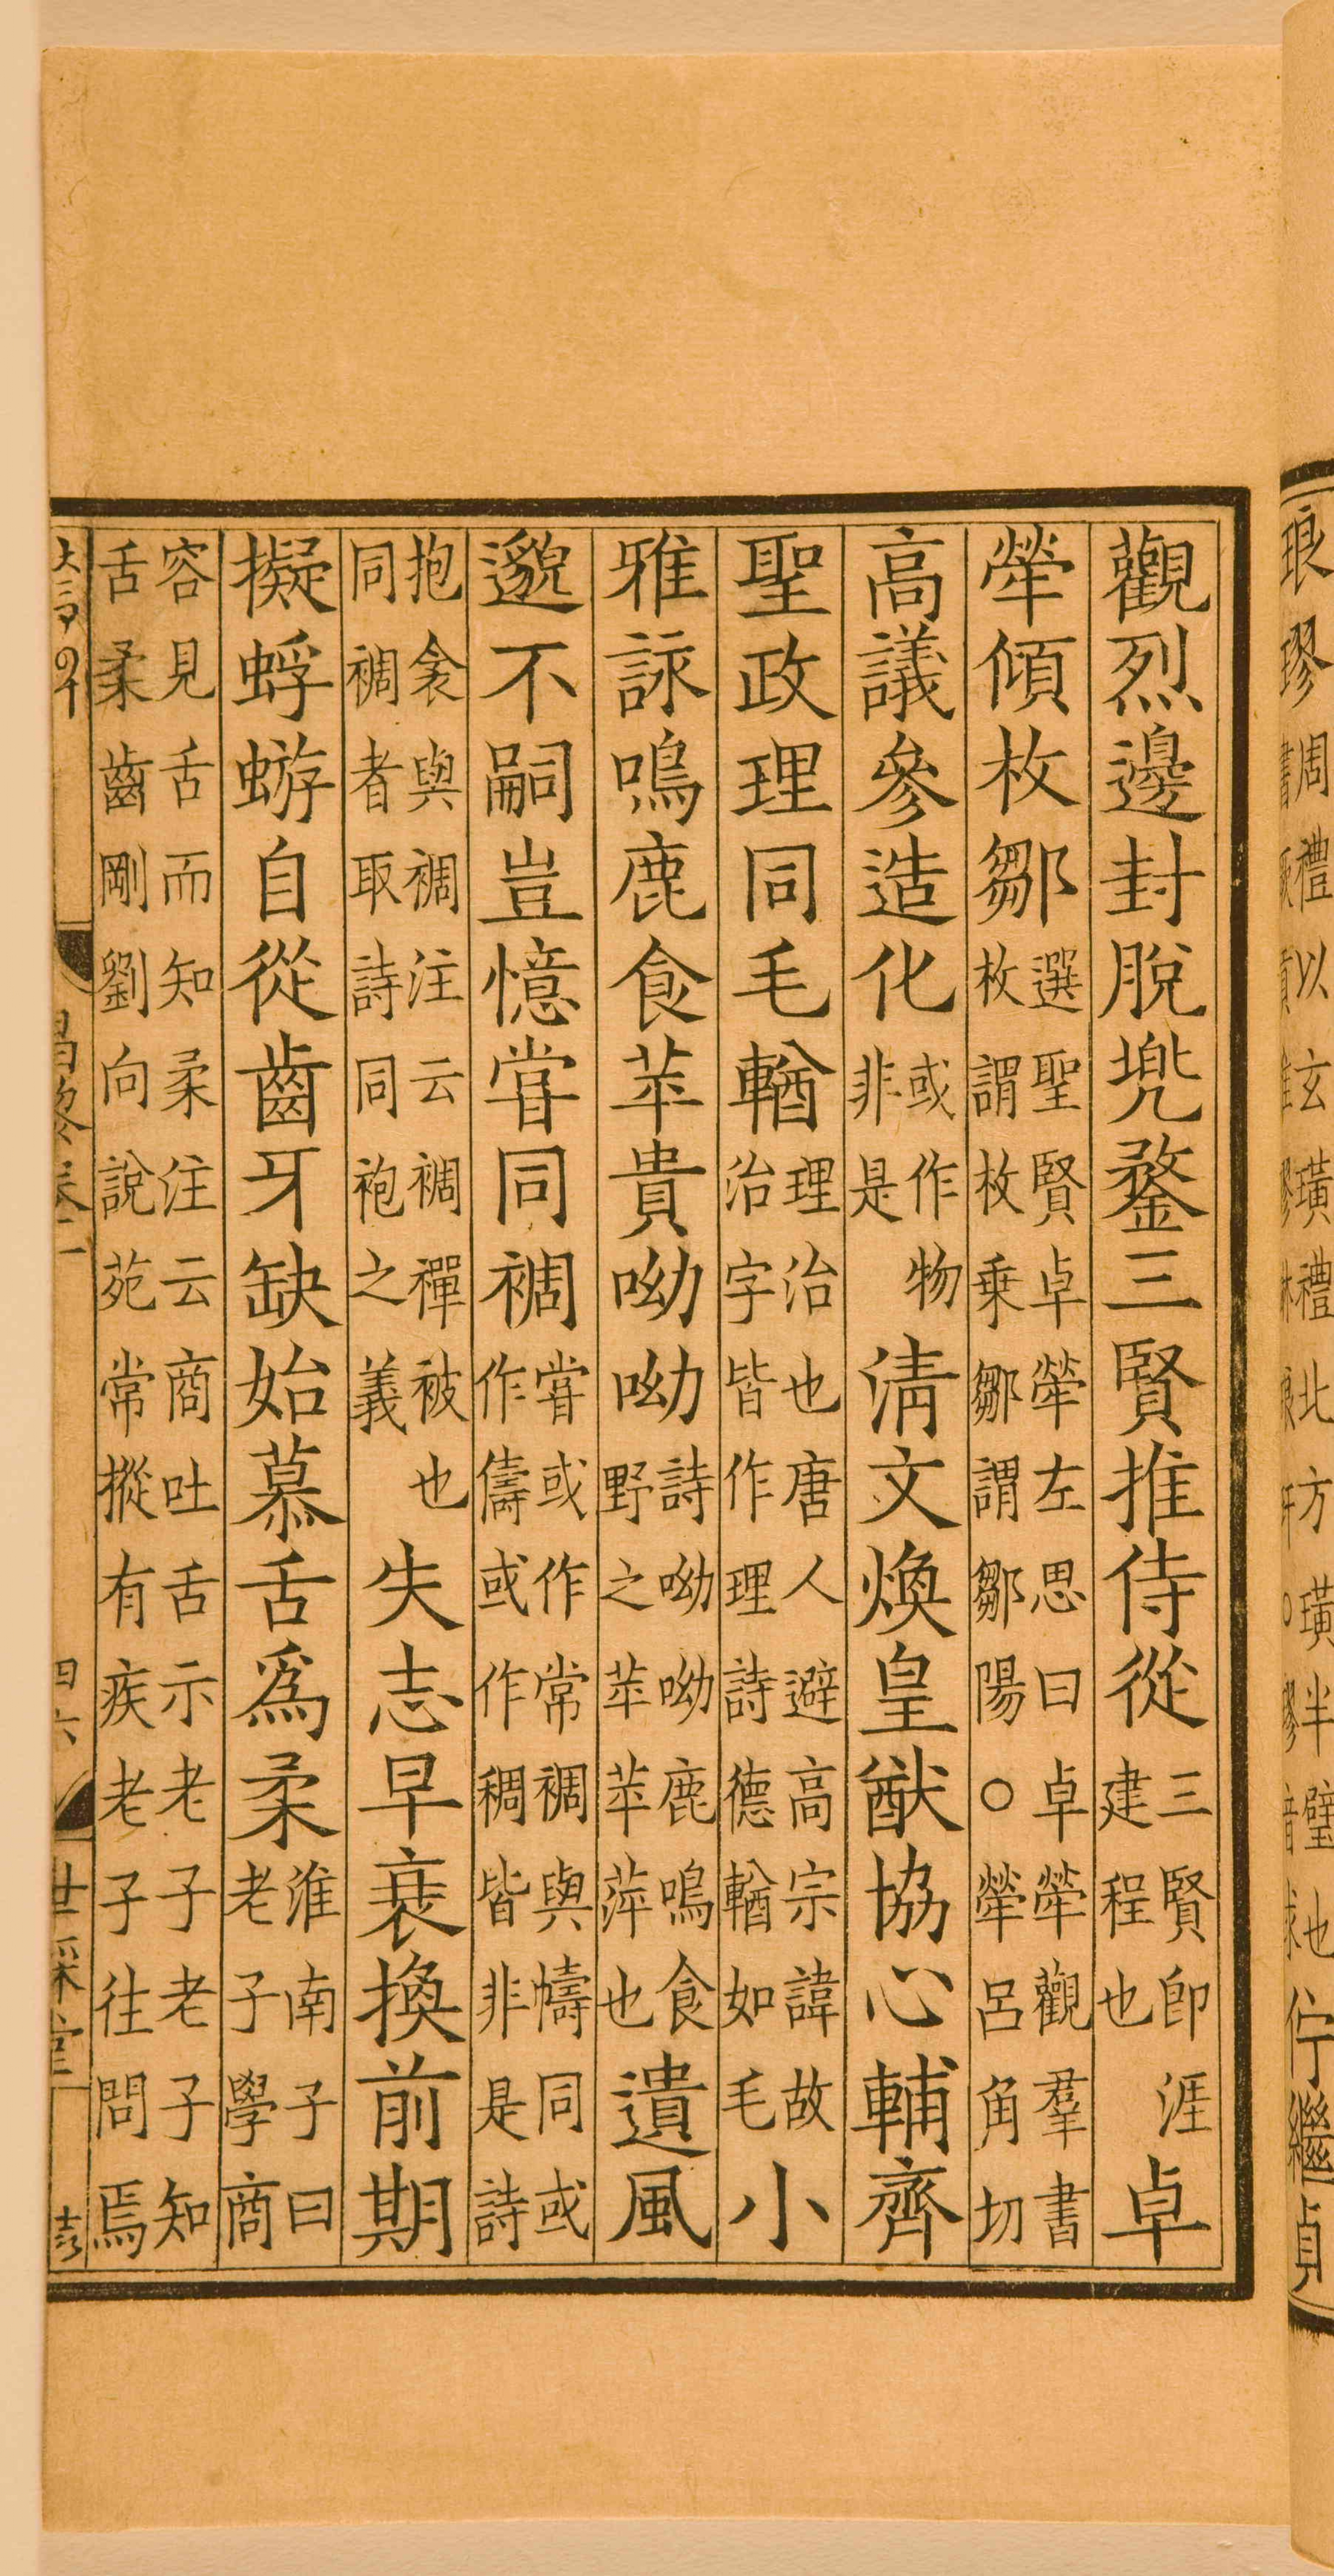 琅璆周禮以玄璜禮北方璜半璧也佇繼貞
觀烈邊封脫兠鍪三賢推侍從三賢卽涯建程也卓
犖傾枚鄒選聖賢卓犖左思曰卓犖觀羣書枚謂枚乗鄒謂鄒陽○犖呂角切
高議參造化或作物非是淸文煥皇猷協心輔齊
聖政理同毛輶理治也唐人避高宗諱故治字皆作理詩德輶如毛小
雅詠鳴鹿食苹貴呦呦詩呦呦鹿鳴食野之苹苹蓱也遺風
邈不嗣豈憶甞同裯甞或作常裯與幬同或作儔或作稠皆非是詩
抱衾與裯注云裯襌被也同裯者取詩同袍之義失志早衰換前期
擬蜉蝣自從齒牙缺始慕舌爲柔淮南子曰老子學商
容見舌而知柔注云商吐舌示老子老子知舌柔齒剛劉向說苑常摐有疾老子往問焉
昌黎卷二 四六 世綵堂